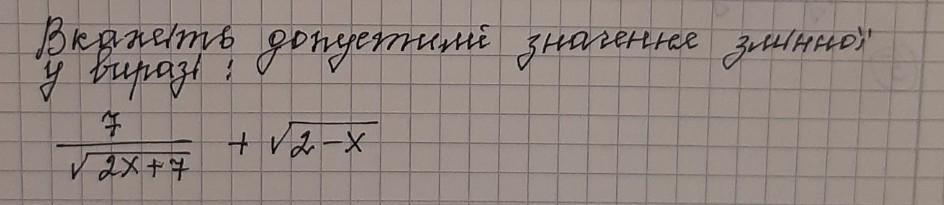 Вкажіть допустимі значення змінної
у виразі :
7/√(2x+7) + √(2-x)